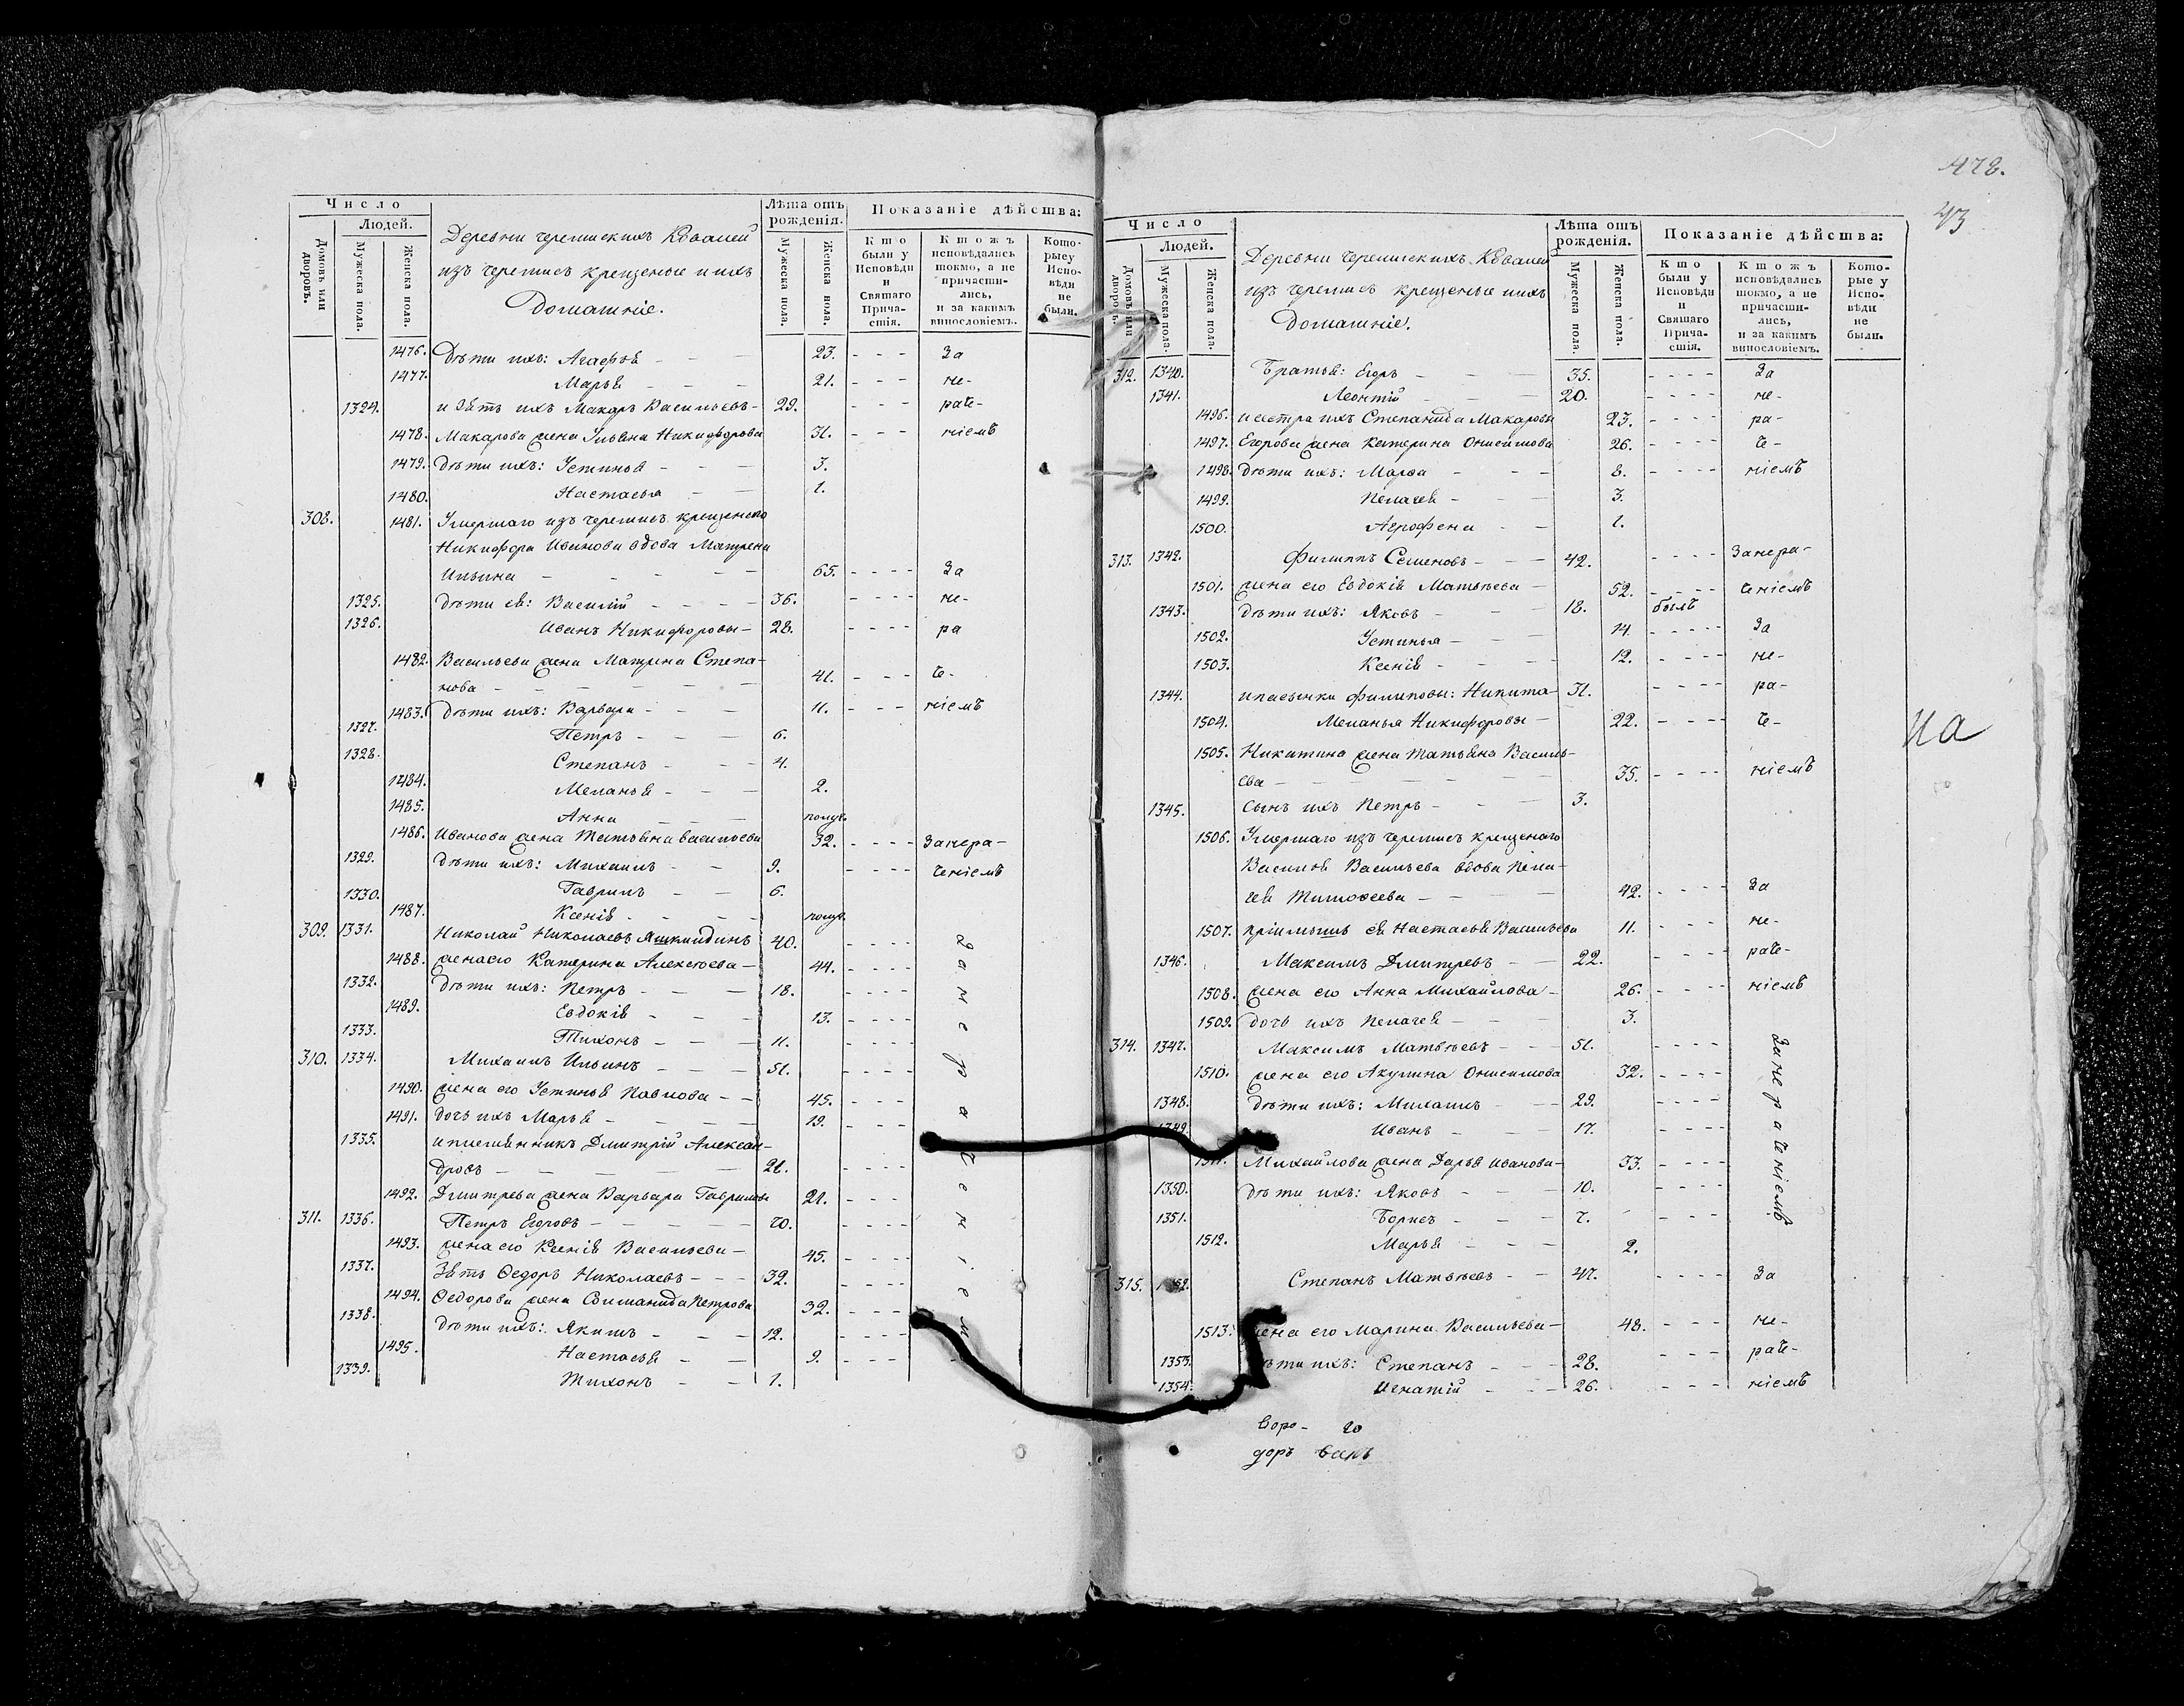 Число
Людей.
Домовъ или дворовъ.
Мужеска пола.
Женска пола.
Деревни черемискихъ Ковалей
изъ черемисъ крещеные и ихъ
Домашніе.
Лѣта отъ рожденія.
Мужеска пола.
Женска пола.
Показаніе дѣйства:
Кто были у Исповѣди и Святаго Причастія.
Ктожъ исповѣдались токмо, а не причастились, и за какимъ винословіемъ.
Которыеу Исповѣди не были.
1476. Дѣти ихъ: Агафья - - 23. - - - За
1477. Марья - - - 21. - - - не-
1324. и Зять ихъ Макаръ Васильевъ - 29. - - - раче-
1478. Макарова жена Ульяна Никифорова 31. - - - ніемъ
1479. Дѣти ихъ: Устинья - - - 3.
1480. Настасья - - 1.
308. 1481. Умершаго изъ черемисъ крещенаго
Никифора Иванова вдова Матрена
Ильина - - - - - 65. - - - - За
1325. Дѣти ея: Василій - - - - 36. - - - - не-
1326. Иванъ Никифоровы - 28. - - - - ра
1482. Васильева жена Матрина Степа-
нова - - - - - - 41. - - - че-
1483. Дѣти ихъ: Варвара - - - 11. - - - ніемъ
1327. Петръ - - - 6.
1328. Степанъ - - - 4.
1484. Меланья - - - 2.
1485. Анна - - - полуг.
1486. Иванова жена Татьяна Васильева 32. - - - - Занера-
1329. Дѣти ихъ: Михаилъ - - 9. - - - - ченіемъ
1330. Гаврилъ - - 6.
1487. Ксенія - - - - полуг.
309. 1331. Николай Николаевъ Яшкильдинъ 40. - - - -
1488. жена его Катерина Алексѣева - 44. - - - -
1332. Дѣти ихъ: Петръ - - - 18. - - - -
1489. Евдокія - - - 13. - - - -
1333. Тихонъ - - - 11. - - - -
310. 1334. Михаилъ Ильинъ - - - 51. - - - -
1490. жена его Устинья Павлова - - 45. - - -
1491. Дочь ихъ Марья - - - - 19. - - - -
1335. и племянникъ Дмитрій Алексан-
дровъ - - - - - 21. - - - -
1492. Дмитрева жена Варвара Гаврилова 21. - - -
311. 1336. Петръ Егоровъ - - - - - 70. - - - -
1493. жена его Ксенія Васильева - 45. - - - -
1337. Зять Ѳедоръ Николаевъ - - - 32. - - - -
1494. Ѳедорова жена Петрова 32. - - - -
1338. Дѣти ихъ: Якимъ - - - 12. - - - -
1495. Настасья - - 9. - - -
1339. Тихонъ - - 1.
За не ра че ні ем
478.
43
Число
Людей.
Домовъ или дворовъ.
Мужеска пола.
Женска пола.
Деревни черемискихъ Ковалей
изъ черемисъ крещеные и ихъ
Домашніе.
Лѣта отъ рожденія.
Мужеска пола.
Женска пола.
Показаніе дѣйства:
Кто были у Исповѣди и Святаго Причастія.
Ктожъ исповѣдались токмо, а не причастились, и за какимъ винословіемъ.
Которые у Исповѣди не были.
312. 1340. Братья: Егоръ - - - 35. - - - - За
1341. Леонтій - - - 20. - - - - не-
1496. и сестра ихъ Степанида Макаровы 23. - - - - ра-
1497. Егорова жена Катерина Онисимова 26. - - - - че-
1498. Дѣти ихъ: Марѳа - - - 8. - - - - ніемъ
1499. Пелагея - - - 3.
1500. Агрофена - - 1.
313. 1342. Филиппъ Семеновъ - - - 42. - - - - Занера-
1501. жена его Евдокія Матвѣева - 52. - - - - ченіемъ
1343. Дѣти ихъ: Яковъ - - - 18. былъ
1502. Устинья - - - 14. - - - - - За
1503. Ксенія - - - - 12. - - - - не-
1344. и пасынки Филиповы: Никита - 31. - - - - ра-
1504. Меланья Никифоровы - 22. - - - - че-
1505. Никитина жена Татьяна Василь-
ева - - - - - - 35. - - - - ніемъ
1345. Сынъ ихъ Петръ - - - 3.
1506. Умершаго изъ черемисъ крещенаго
Василья Васильева вдова Пела-
гея Тимоѳеева - - - 42. - - - - За
1507. пріимышъ ея Настасья Васильева 11. - - - не-
1346. Максимъ Дмитревъ - - 22. - - - - раче-
1508. жена его Анна Михайлова - 26. - - - - ніемъ
1509. Дочь ихъ Пелагея - - - 3.
314. 1347. Максимъ Матвѣевъ - - - 51. - - - -
1510. жена его Акулина Онисимова 32. - - - -
1348. Дѣти ихъ: Михаилъ - - 29. - - - -
1349. Иванъ - - - 17. - - - -
Михайлова жена Дарья Иванова - 33. - - - -
1350. Дѣти ихъ: Яковъ - - - 10. - - - -
1351. Борисъ - - - 7. - - - -
1512. Марья - - - 2.
Занераченіемъ
315. Степанъ Матвѣевъ - - 47. - - - - За
1513. жена его Марина Васильева - 48. - - - не-
1353. Дѣти ихъ: Степанъ - - - 28. - - - раче-
1354. Игнатій - - - 26. - - - ніемъ
на